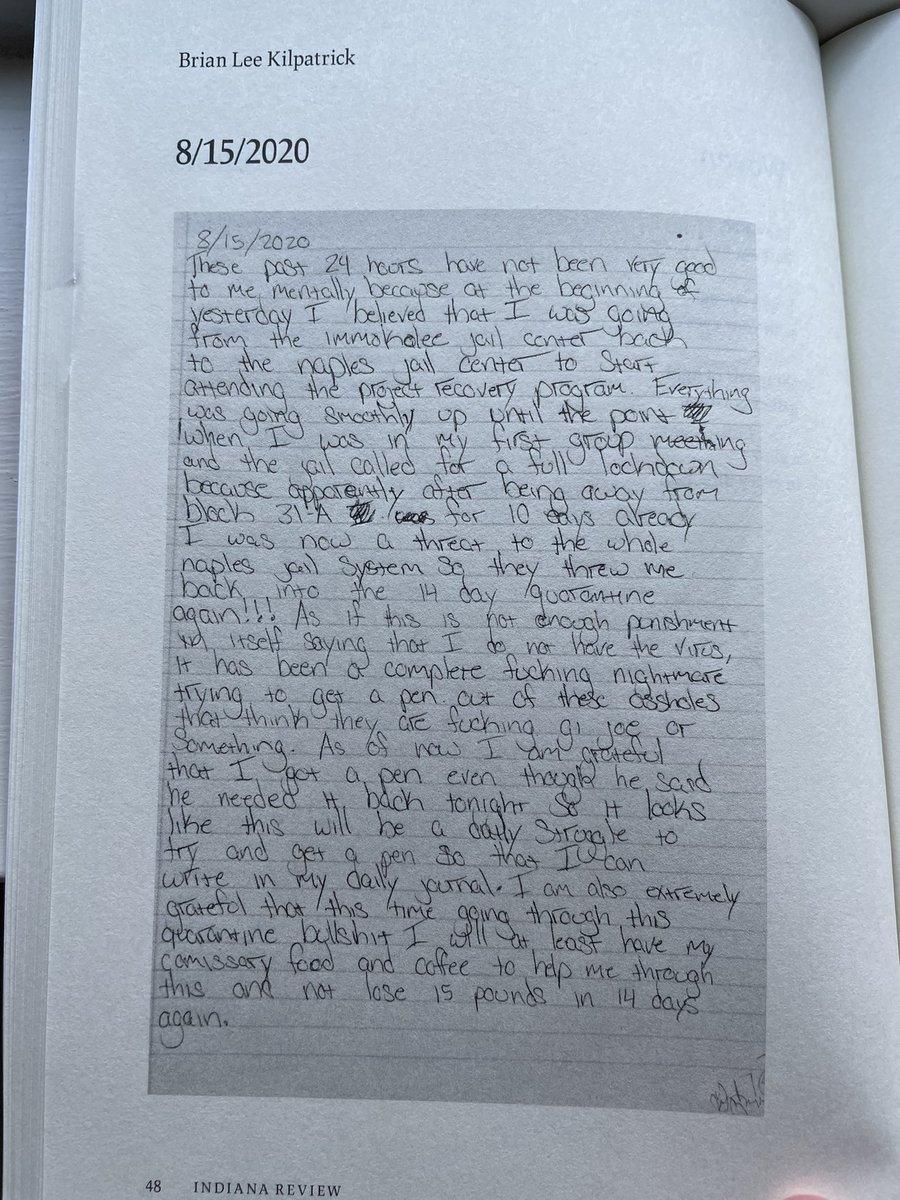 Brian Lee Kilpatrick
8/15/2020
8/15/2020
These past 24 hours have not been very good
to me mentally because at the beginning of
yesterday I believed that I was going
from the immokolee jail center back
to the naples jail center to start
attending the project recovery program. Everything
was going smoothly up until the point
when I was in my first group meething
and the jail called for a full lockdown
because apparently after being away from
block 31 A for 10 days already
I was now a threat to the whole
naples jail system so they threw me
back into the 14 day quarantine
again!!! As if this is not enough punishment
in itself saying that I do not have the virus,
it has been a complete fucking nightmare
trying to get a pen out of these assholes
that think they are fucking gi joe or
something. As of now I am grateful
that I got a pen even though he said
he needed it back tonight so it looks
like this will be a daily struggle to
try and get a pen so that I can
write in my daily journal. I am also extremely
grateful that this time going through this
quarantine bullshit I will at least have my
comissary food and coffee to help me through
this and not lose 15 pounds in 14 days
again.
48 INDIANA REVIEW